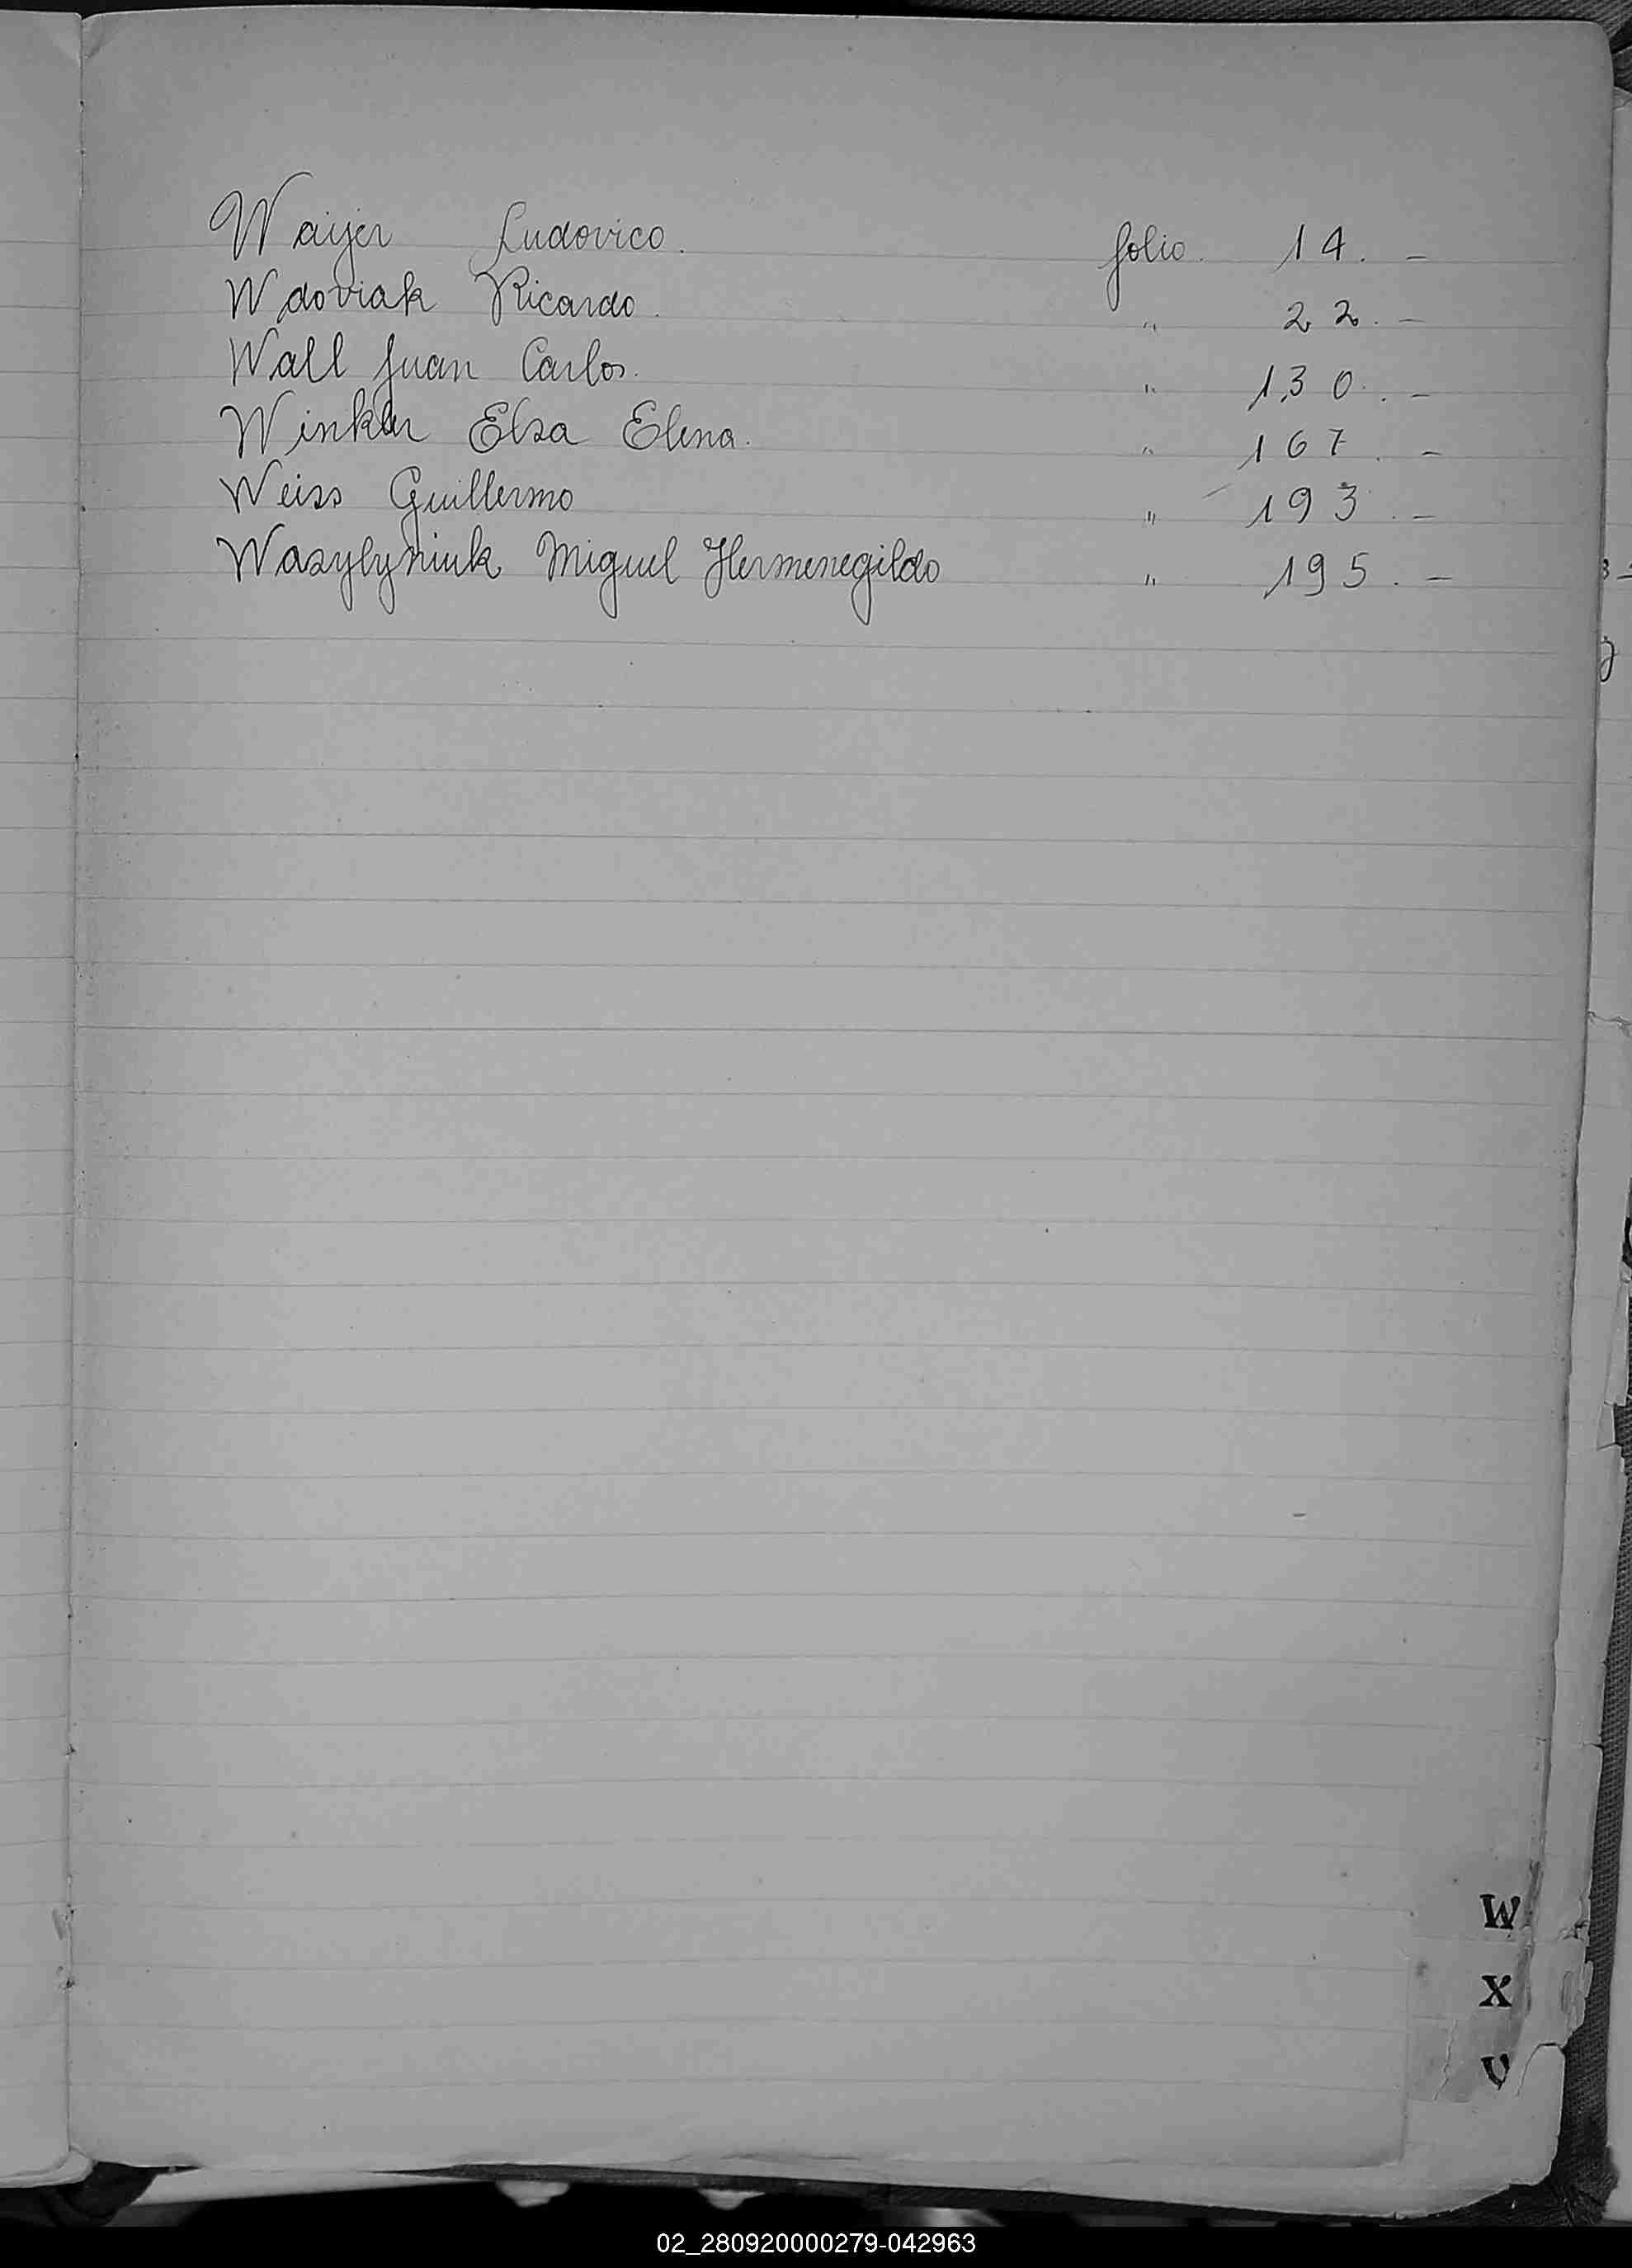 Waijer Ludovico. folio. 14. –
Wdoviak Ricardo. " 22. –
Wall Juan Carlos. " 130. –
Winkler Elsa Elena. " 167. –
Weiss Guillermo " 193. –
Wasylyniuk Miguel Hermenegildo " 195. –
W
X
02_280920000279-042963